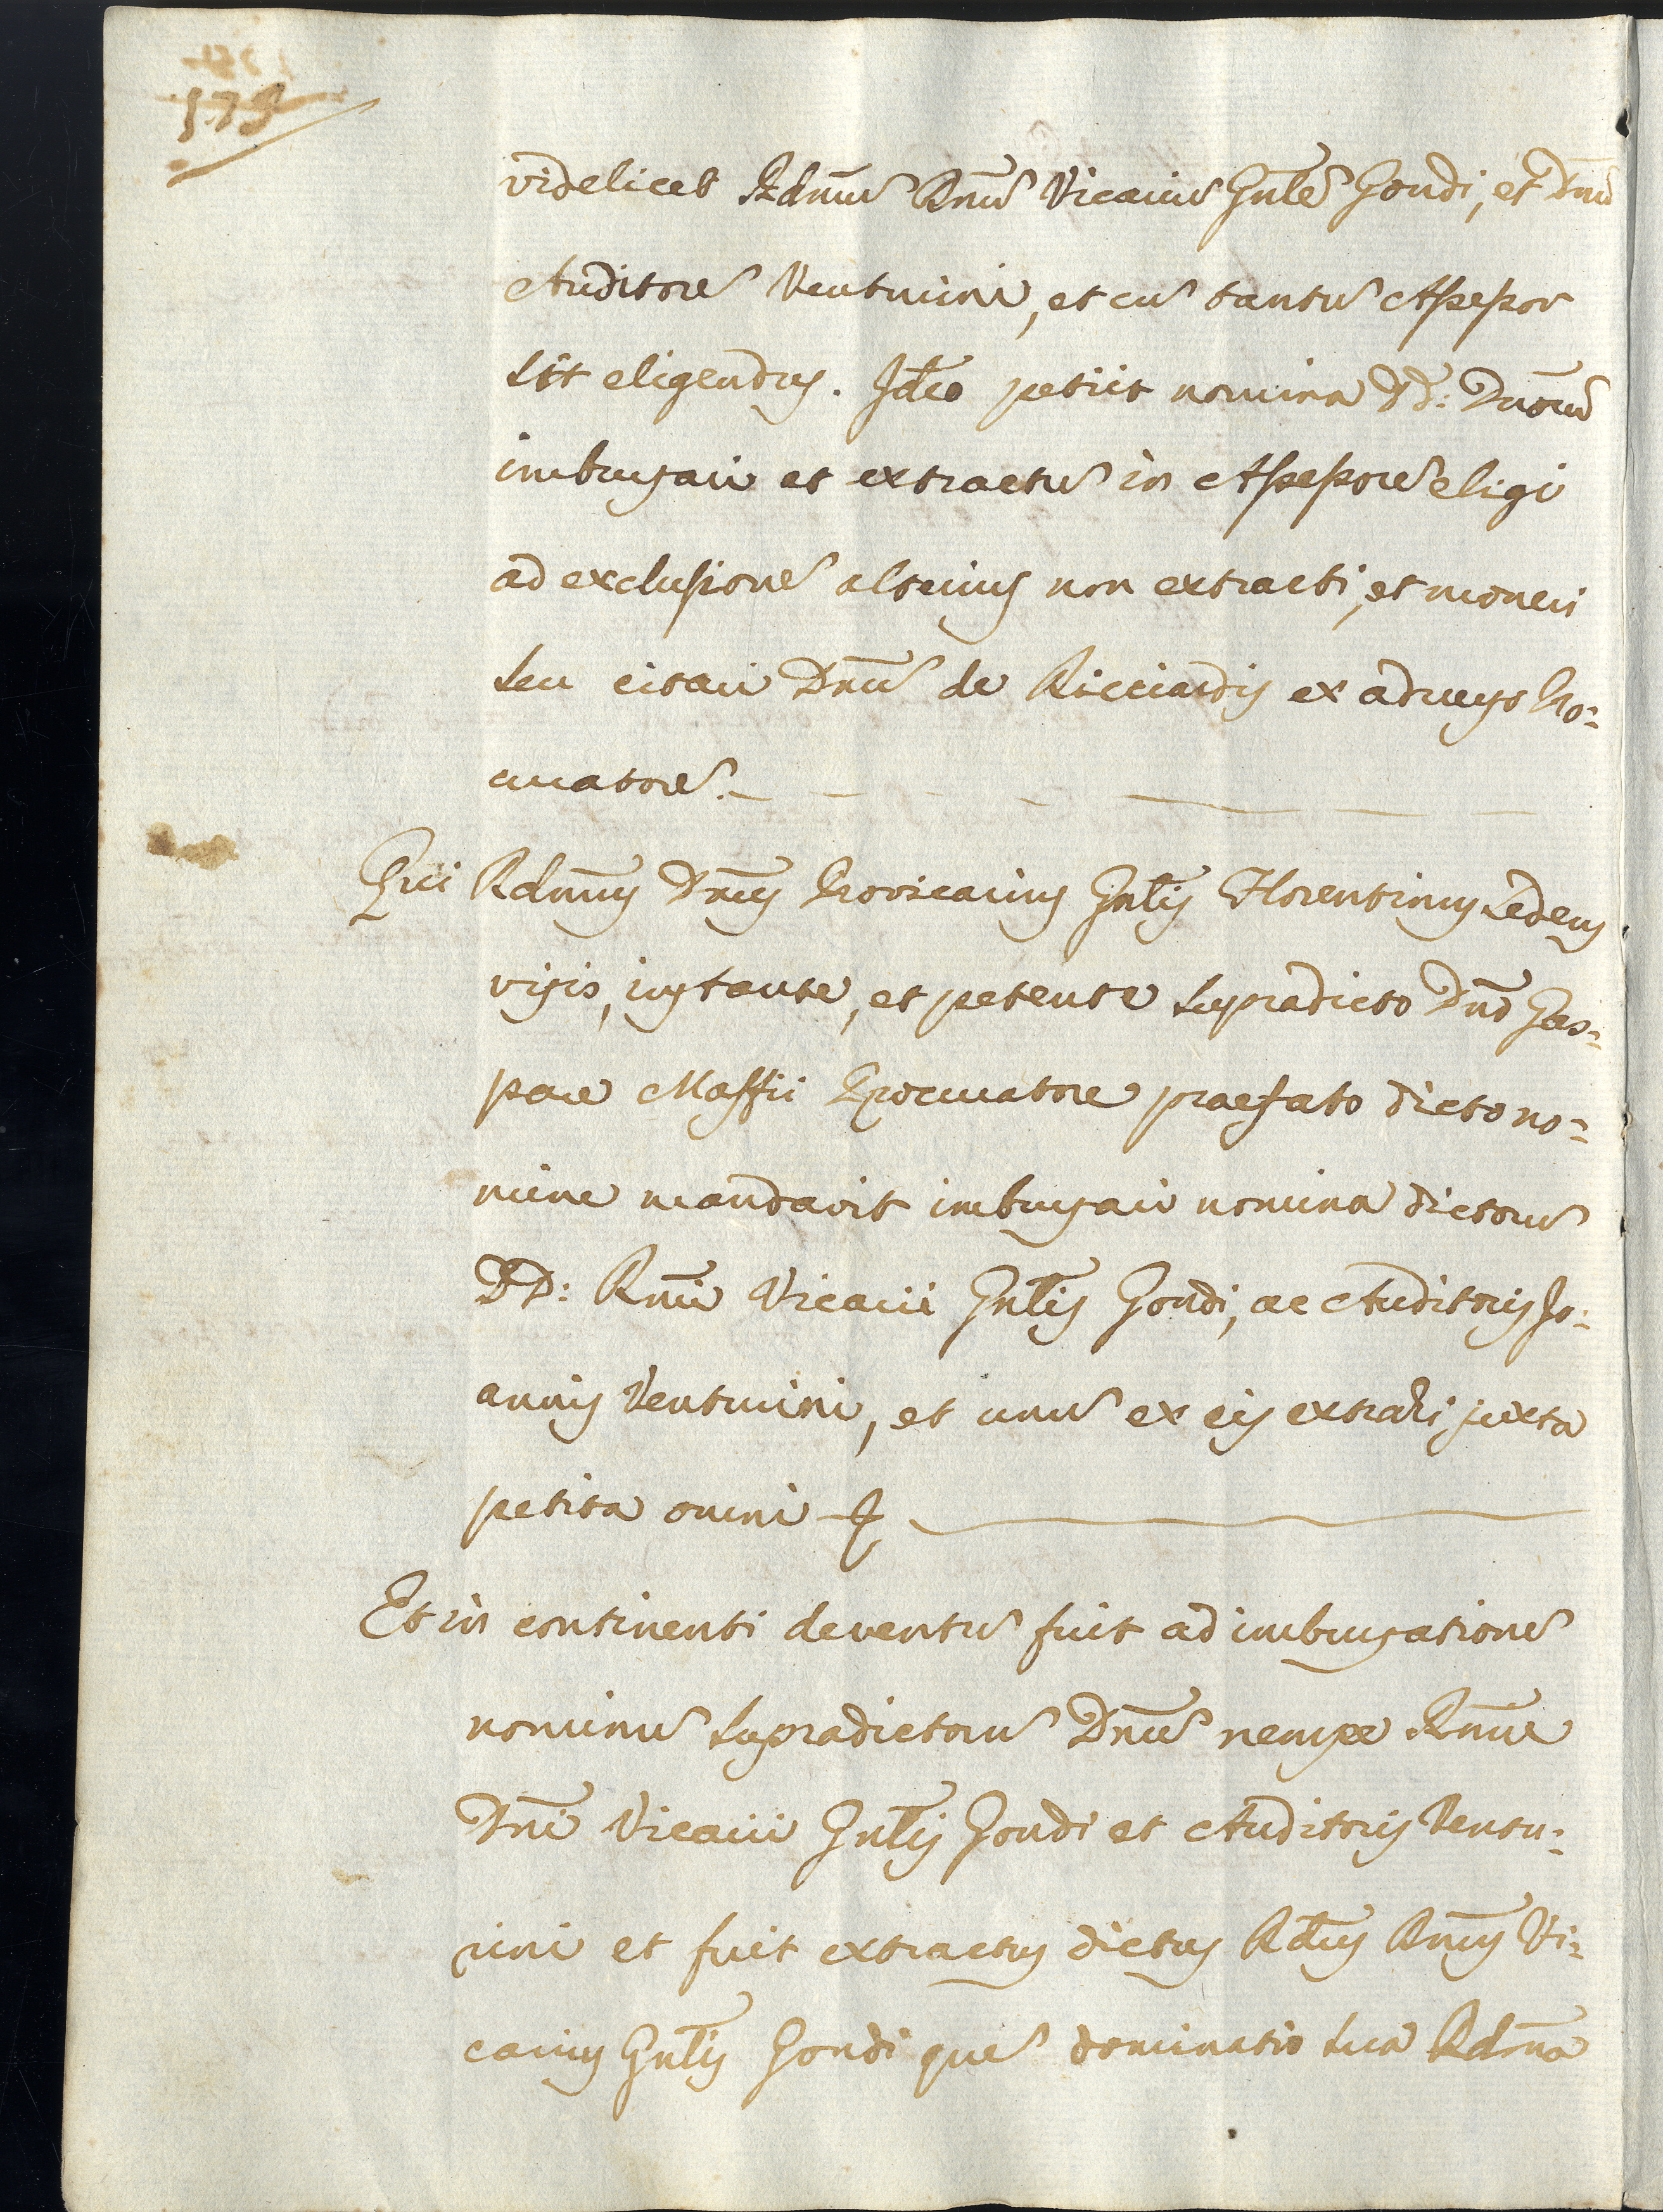 videlicet Rdmũ Dnũ Vicariũ Gnlẽ Gondi, et Dnũ
Auditorẽ Venturini, et cũ tantũ Assessor
sit eligendus. Ideo petiit nomina DD: Duorũ
imbursari et extractũ in Assessorẽ eligi
ad exclusionẽ alterius non extracti, et moneri
seu citari Dnũ de Ricciardis ex adverso Pro=
curatorẽ.
Qui Rdmus Dnus Provicarius Gnlis Florentinus sedens
visis, instante, et petente supradicto Dnõ Gas=
pare Maffii Procuratore praefato dicto no=
mine mandavit imbursari nomina dictorũ
DD: Rmi Vicarii Gnlis Gondi, ac Auditoris Jo=
annis Venturini, et unũ ex eis extrahi juxta
petita omni
Et in continenti deventũ fuit ad imbursationẽ
nominũ supradictorũ Dnũ nempe Rmi
Dni Vicarii Gnlis Gondi et Auditoris Ventu=
rini et fuit extractus dictus Rdus Dnus Vi=
carius Gnlis Gondi quẽ dominatio sua Rdma